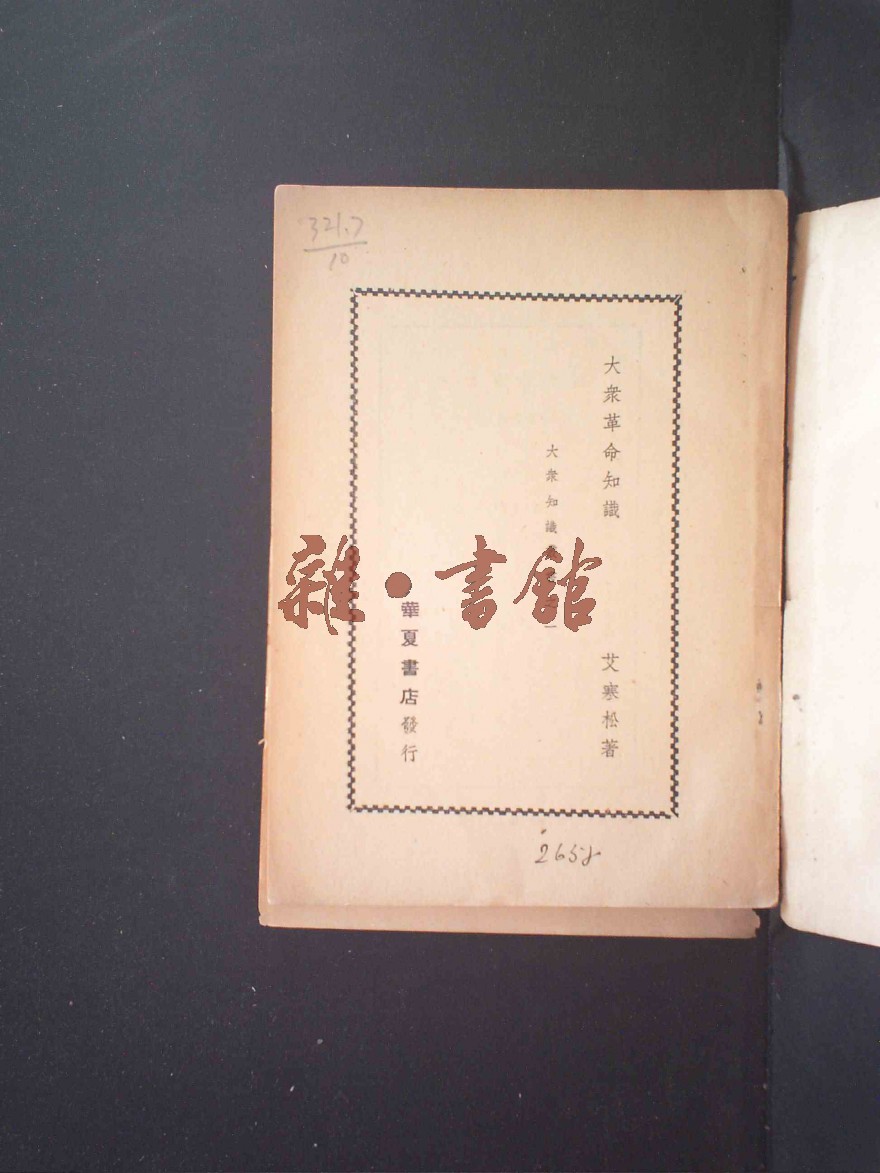 321.7
10
大衆革命知識
艾寒松著
大衆知識
一
華夏書店發行
雜·書館
2658